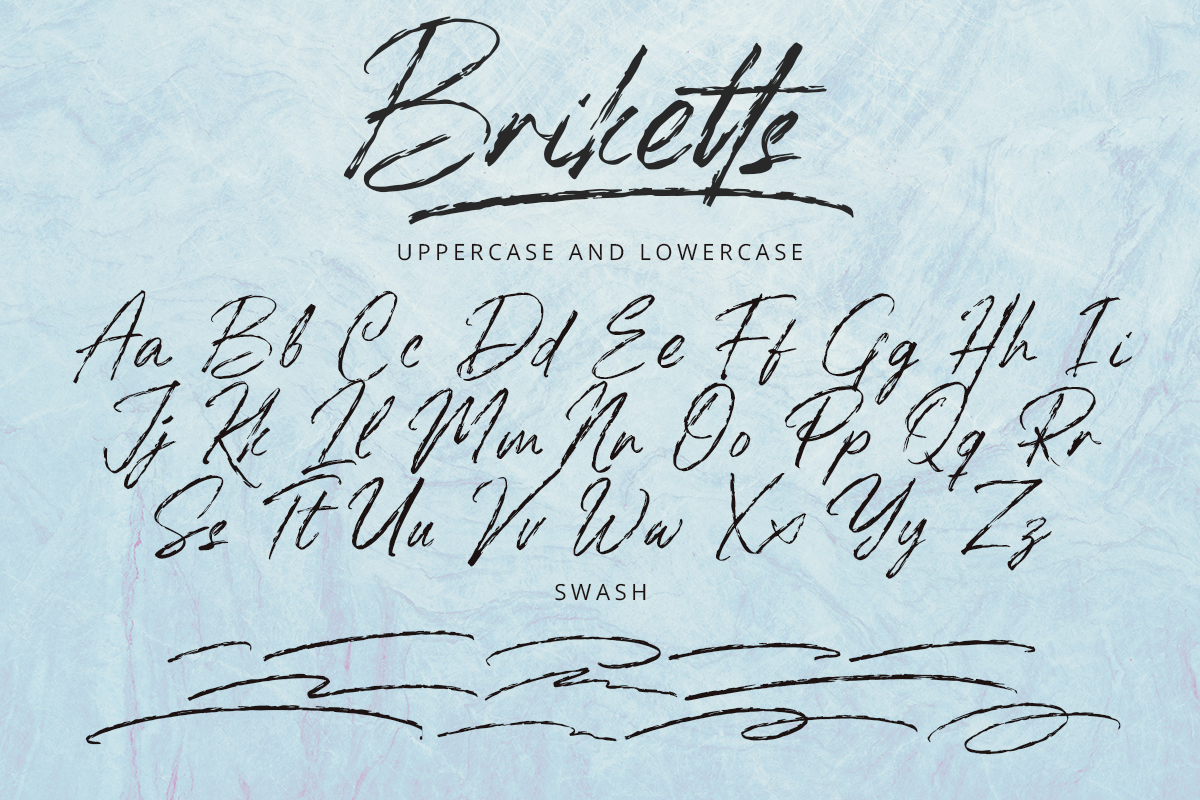 Briketts
UPPERCASE AND LOWERCASE
Aa Bb Cc Dd Ee Ff Gg Hh Ii
Jj Kk Ll Mm Nn Oo Pp Qq Rr
Ss Tt Uu Vv Ww Xx Yy Zz
SWASH